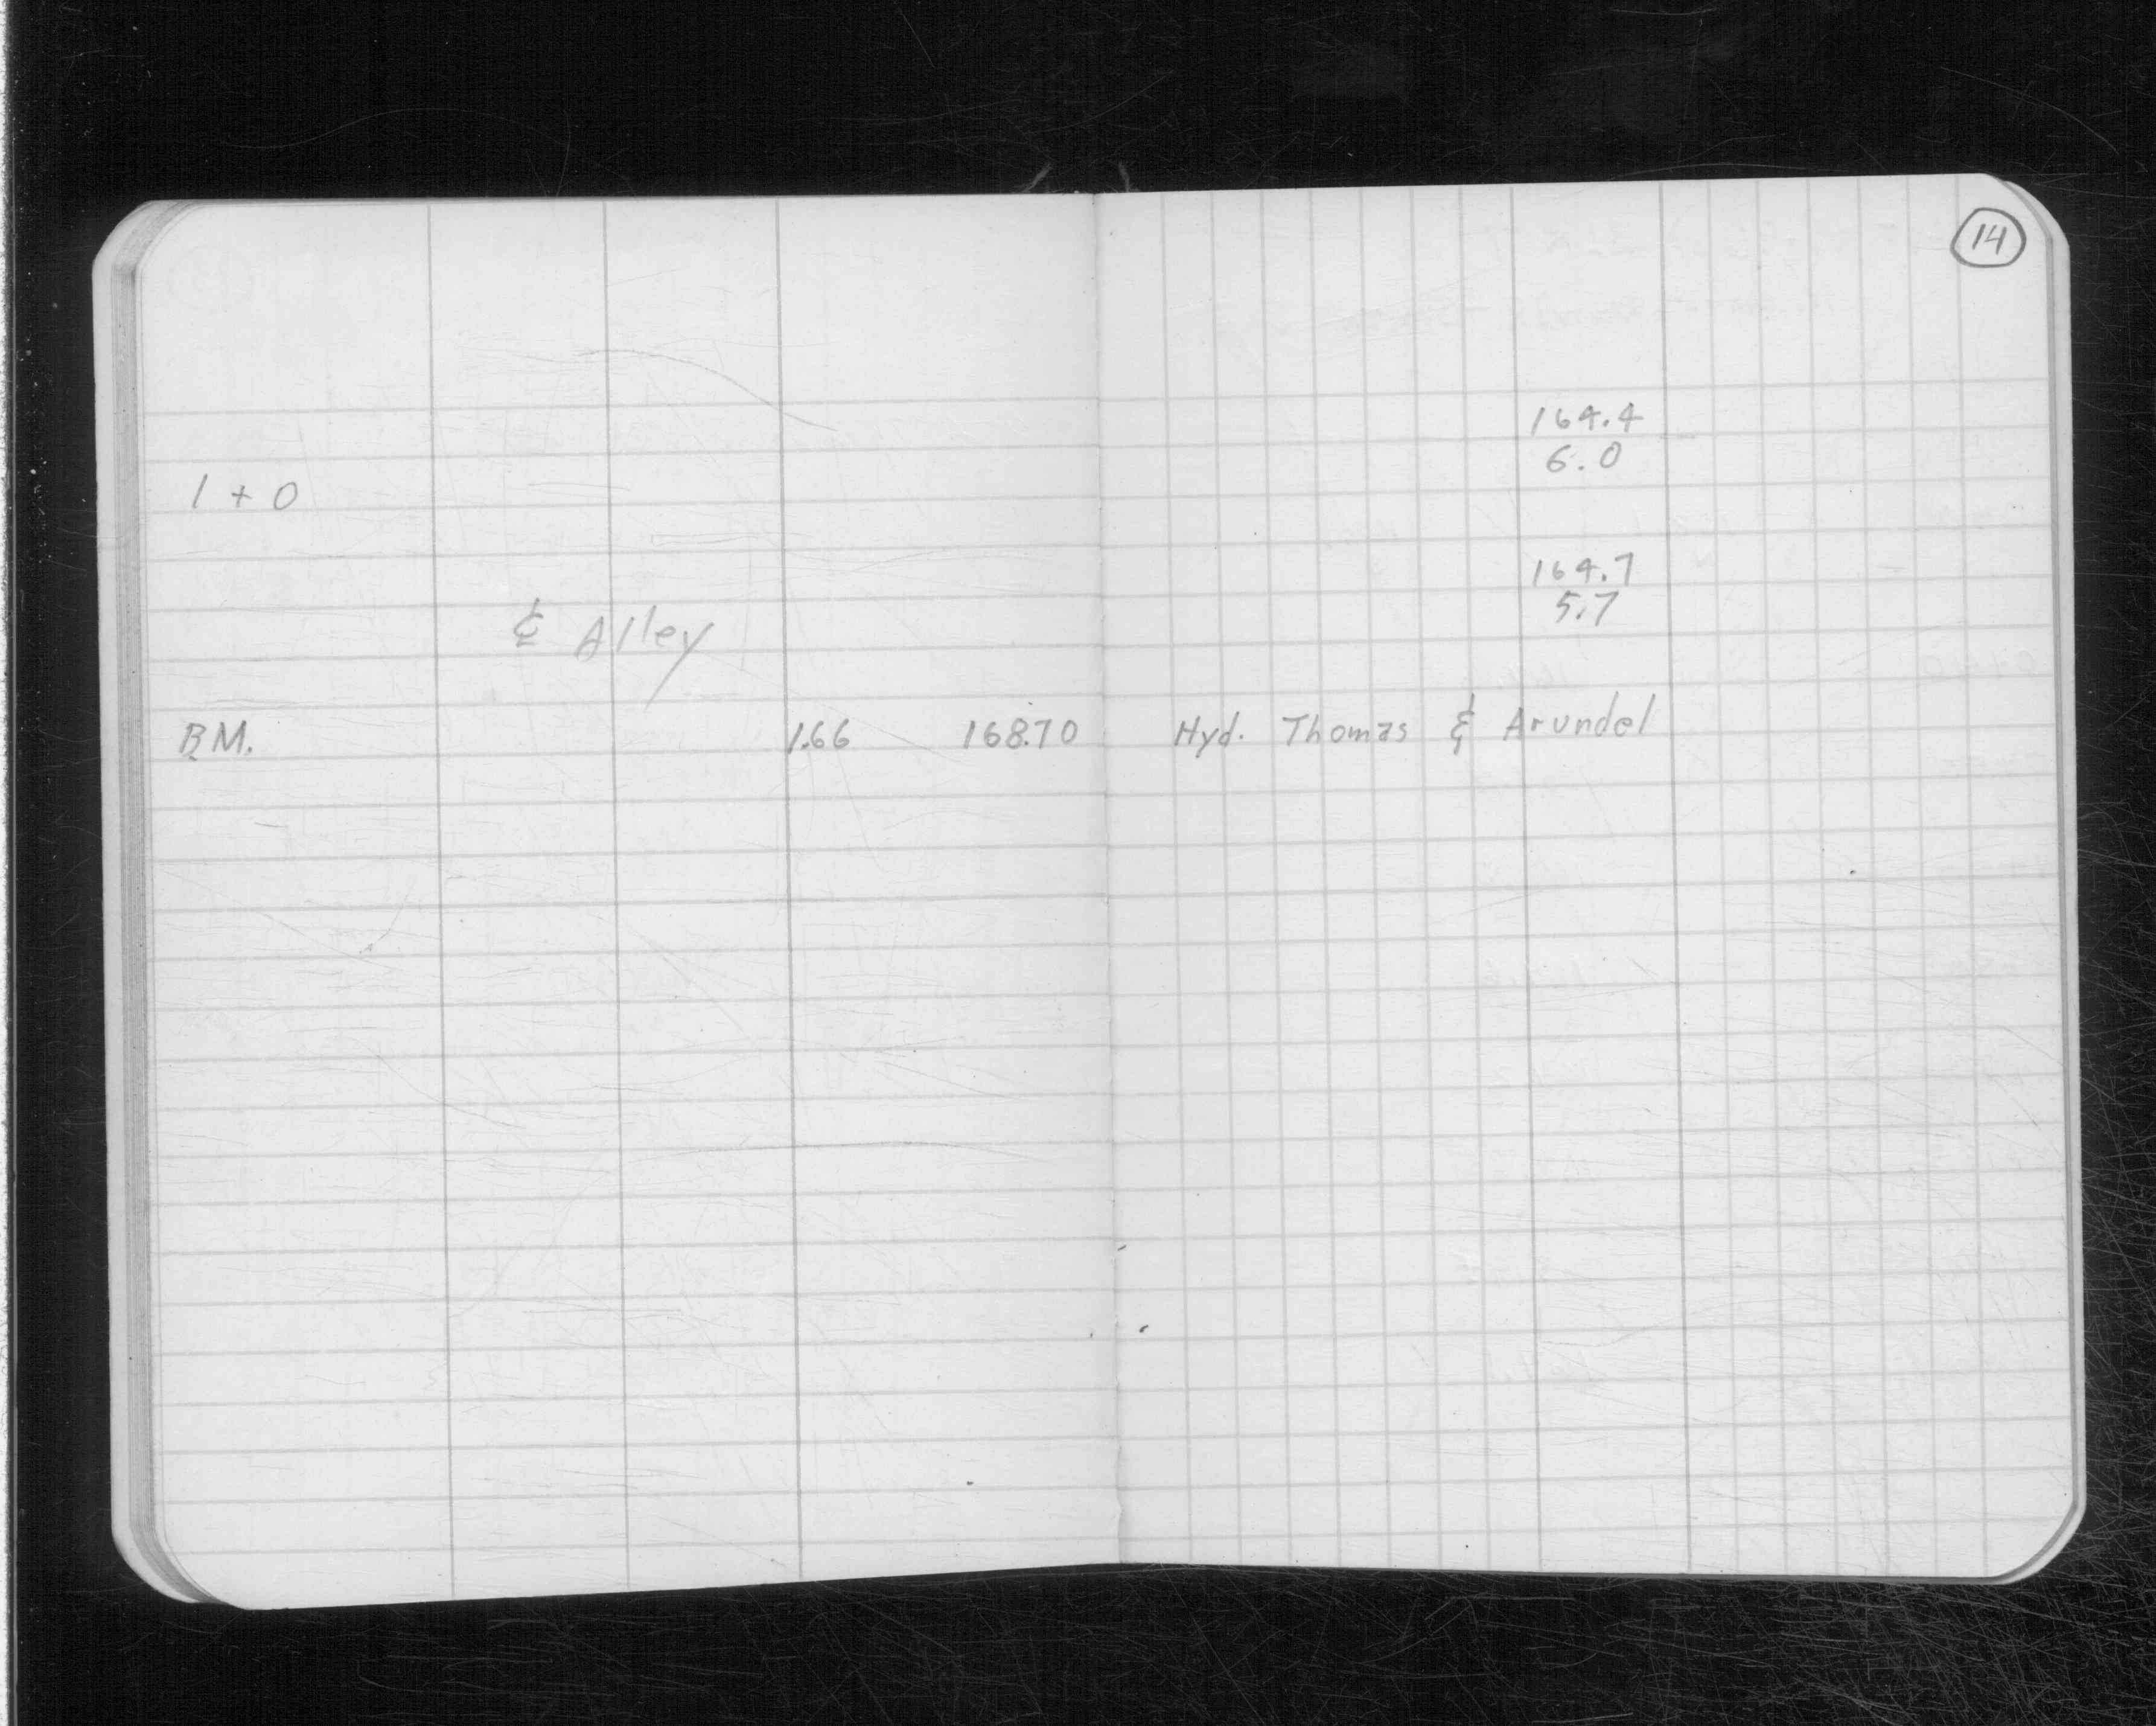 14
164.4
6.0
1 + 0
164.7
5.7
& Alley
B.M. 1.66 168.70 Hyd. Thomas & Arundel